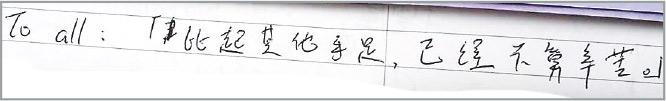 To all：「比起其他手足，已經不算辛苦」